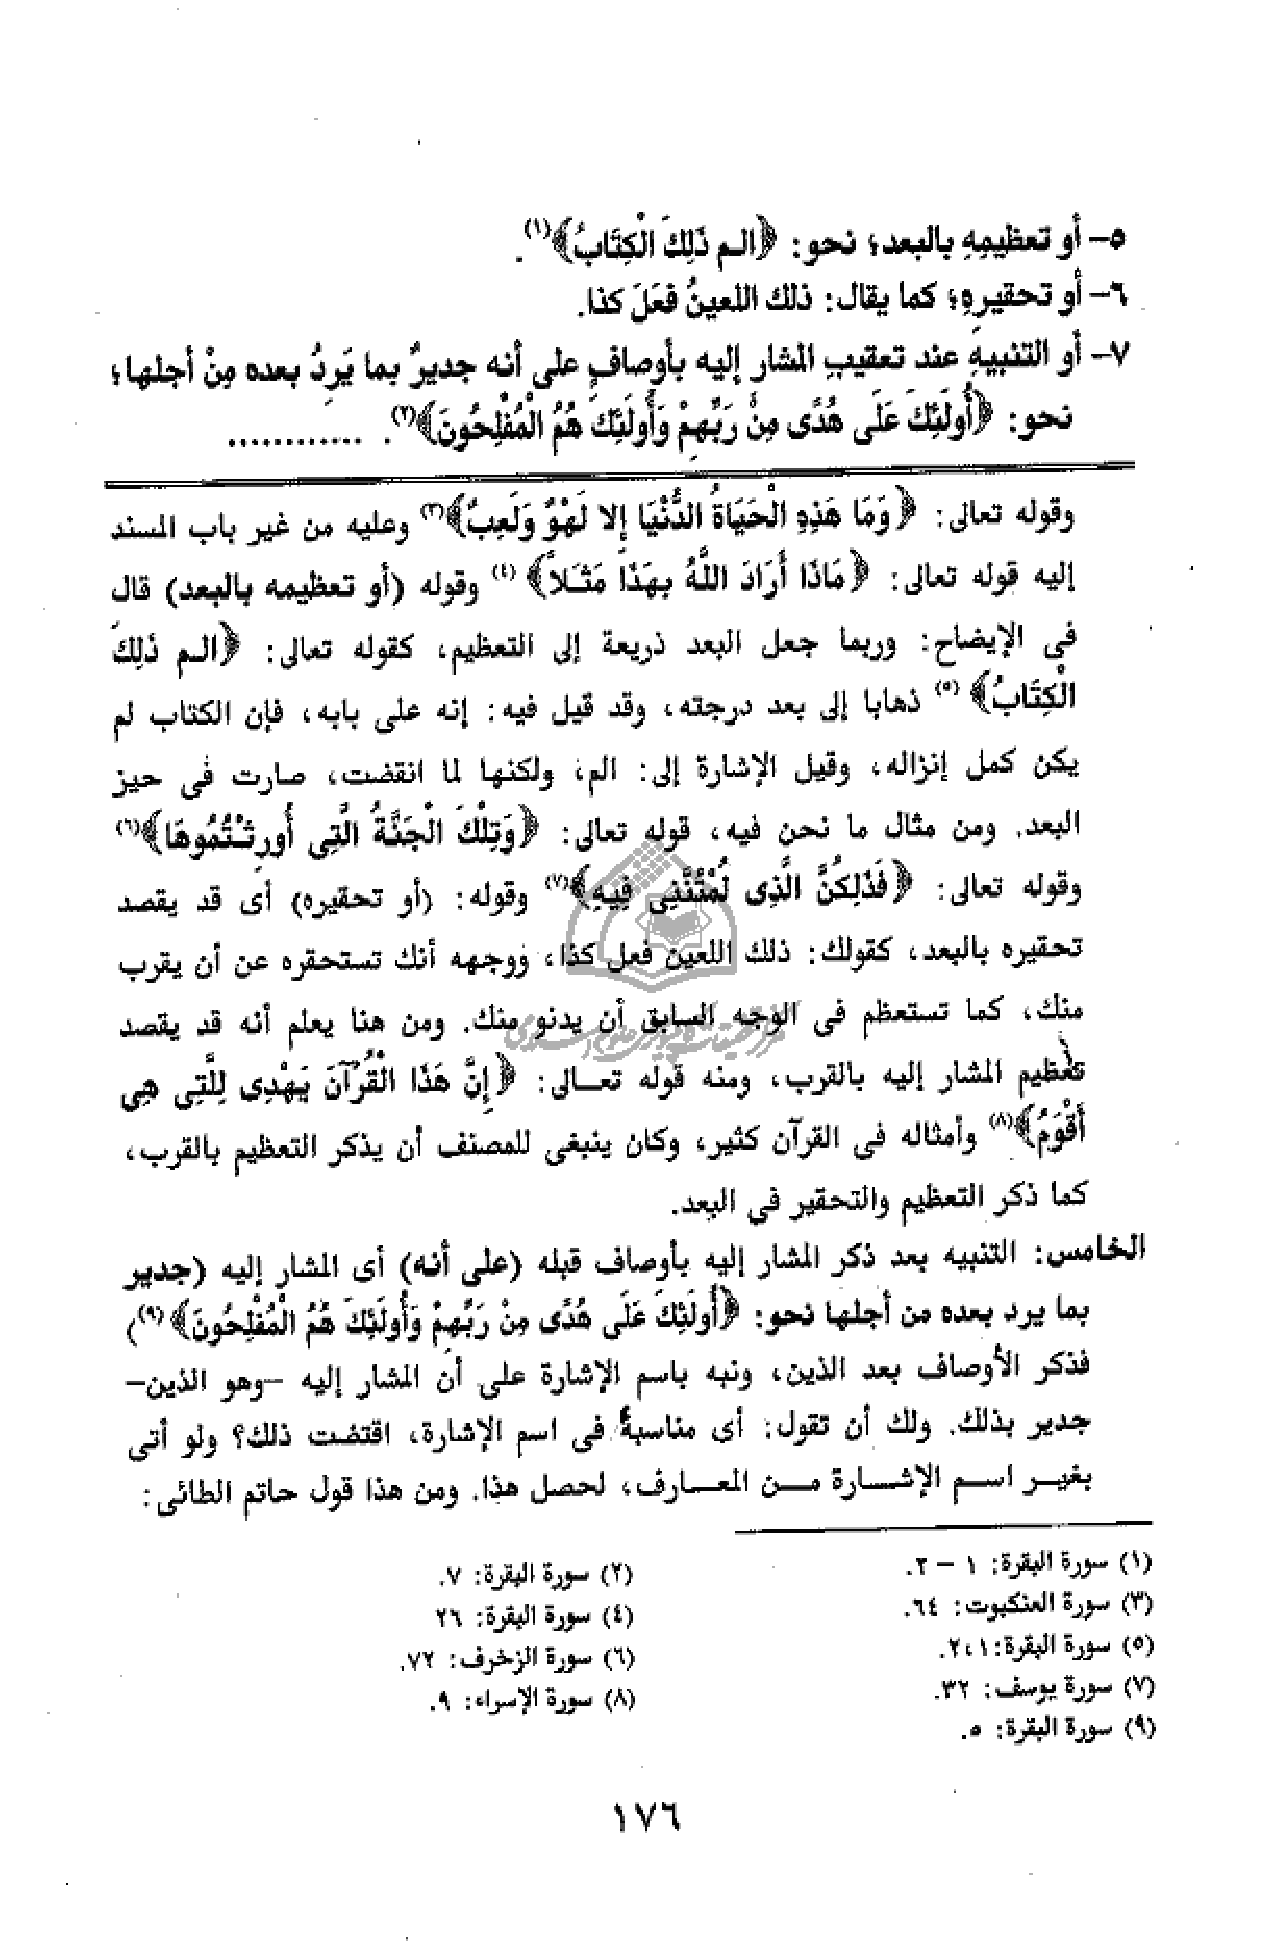 ٥- أو تعظيمِهِ بالبعد؛ نحو: ﴿الـم ذَلِكَ الْكِتَابُ﴾(١).
٦- أو تحقيرِهِ؛ كما يقال: ذلك اللعينُ فَعَلَ كذا.
٧- أو التنبيهِ عند تعقيبِ المشار إليه بأوصافٍ على أنه جديرٌ بما يَرِدُ بعده مِنْ أجلها؛
نحو: ﴿أُولَئِكَ عَلَى هُدًى مِنْ رَبِّهِمْ وَأُولَئِكَ هُمُ الْمُفْلِحُونَ﴾(٢). ............
وقوله تعالى: ﴿وَمَا هَذِهِ الْحَيَاةُ الدُّنْيَا إِلا لَهْوٌ وَلَعِبٌ﴾(٣) وعليه من غير باب المسند
إليه قوله تعالى: ﴿مَاذَا أَرَادَ اللَّهُ بِهَذَا مَثَـلاً﴾(٤) وقوله (أو تعظيمه بالبعد) قال
فى الإيضاح: وربما جعل البعد ذريعة إلى التعظيم، كقوله تعالى: ﴿الـم ذَلِكَ
الْكِتَابُ﴾(٥) ذهابا إلى بعد درجته، وقد قيل فيه: إنه على بابه، فإن الكتاب لم
يكن كمل إنزاله، وقيل الإشارة إلى: الم، ولكنها لما انقضت، صارت فى حيز
البعد. ومن مثال ما نحن فيه، قوله تعالى: ﴿وَتِلْكَ الْجَنَّةُ الَّتِى أُورِثْـتُمُوهَا﴾(٦)
وقوله تعالى: ﴿فَذَلِكُنَّ الَّذِى لُمْتُنَّنِى فِيهِ﴾(٧) وقوله: (أو تحقيره) أى قد يقصد
تحقيره بالبعد، كقولك: ذلك اللعين فعل كذا، ووجهه أنك تستحقره عن أن يقرب
منك، كما تستعظم فى الوجه السابق أن يدنو منك. ومن هنا يعلم أنه قد يقصد
تعظيم المشار إليه بالقرب، ومنه قوله تعـــالى: ﴿إِنَّ هَذَا الْقُرْآنَ يَـهْدِى لِلَّتِى هِىَ
أَقْوَمُ﴾(٨) وأمثاله فى القرآن كثير، وكان ينبغى للمصنف أن يذكر التعظيم بالقرب،
كما ذكر التعظيم والتحقير فى البعد.
الخامس: التنبيه بعد ذكر المشار إليه بأوصاف قبله (على أنه) أى المشار إليه (جدير
بما يرد بعده من أجلها نحو: ﴿أُولَئِكَ عَلَى هُدًى مِنْ رَبِّهِمْ وَأُولَئِكَ هُمُ الْمُفْلِحُونَ﴾(٩))
فذكر الأوصاف بعد الذين، ونبه باسم الإشارة على أن المشار إليه -وهو الذين-
جدير بذلك. ولك أن تقول: أى مناسبة فى اسم الإشارة، اقتضت ذلك؟ ولو أتى
بغيـــر اســم الإشـــارة مـــن المعـــارف، لحصل هذا. ومن هذا قول حاتم الطائى:
(١) سورة البقرة: ١ - ٢.
(٢) سورة البقرة: ٧.
(٣) سورة العنكبوت: ٦٤.
(٤) سورة البقرة: ٢٦
(٥) سورة البقرة: ١، ٢.
(٦) سورة الزخرف: ٧٢.
(٧) سورة يوسف: ٣٢.
(٨) سورة الإسراء: ٩.
(٩) سورة البقرة: ٥.
١٧٦